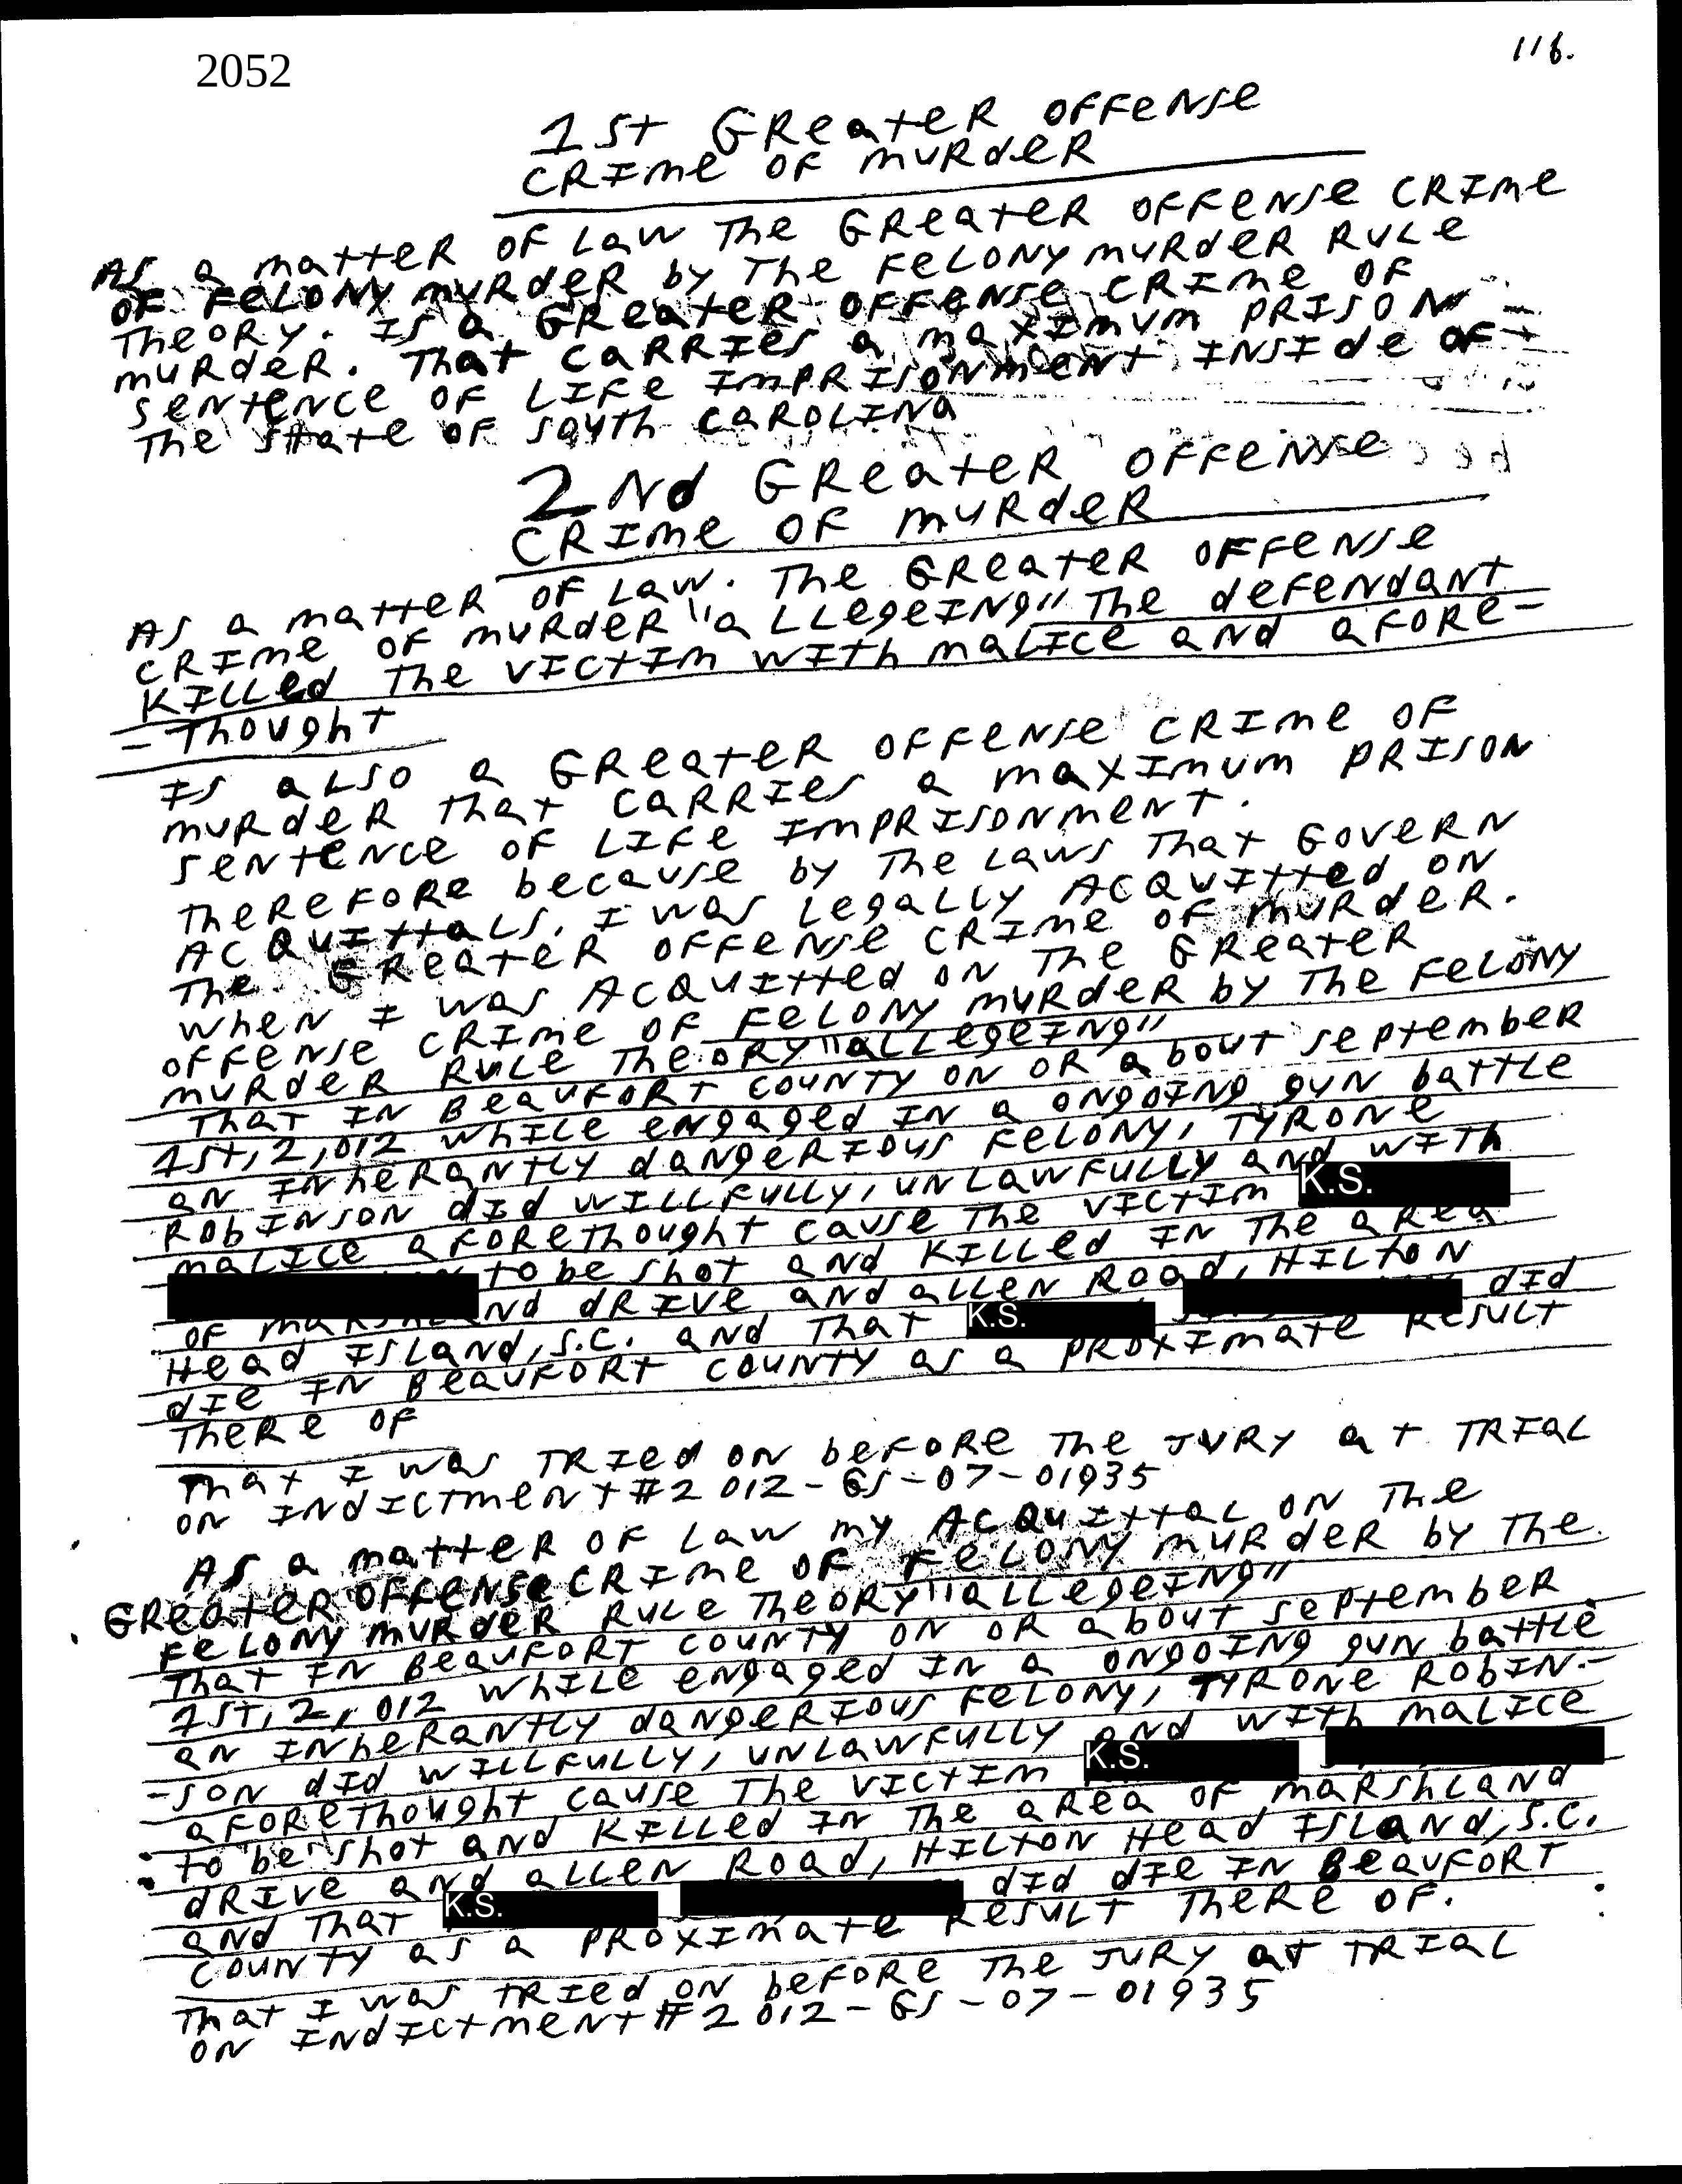 2052
116.
1st GReateR OFFeNse
CRIme OF muRdeR
As a matteR OF Law The GReateR OFFeNse CRIme
OF FeLONy muRdeR by The FeLONy muRdeR RuLe
TheORy. Is a GReateR OFFeNse CRIme OF
muRdeR. That CaRRIes a maxImum PRISON
SeNteNce OF LIFe ImPRISONmeNt INSIde OF
The State OF South CaROLINa
2Nd GReateR OFFeNse
CRIme OF muRdeR
As a matteR OF Law. The GReateR OFFeNse
CRIme OF muRdeR "aLLegeING" The defeNdaNt
KILLed The VICtIm WIth maLIce aNd aFORe-
-Thought
Is aLso a GReateR OFFeNse CRIme OF
muRdeR that CaRRIes a maxImum PRISON
SeNteNce OF LIFe ImPRISONmeNt.
TheReFORe because by The Laws That GOVeRN
ACQuIttaLs. I was LegaLLy ACQuItted ON
The GReateR OFFeNse CRIme OF muRdeR.
WheN I was ACQuItted ON The GReateR
OFFeNse CRIme OF FeLONy muRdeR by The FeLONy
muRdeR RuLe TheORy "aLLegeING"
That IN BeauFORt COuNty ON OR about SePtembeR
1st, 2,012 WhILe eNgaged IN a ONgOING guN battLe
aN INheRaNtLy daNgeRIOus FeLONy, TyRONe
RobINsoN dId WILLFuLLy, uNLawFuLLy aNd WIth
maLIce aFORethought cause The VICtIm K.S.
to be shot aNd KILLed IN The aRea
OF maRshLaNd dRIVe aNd aLLeN Road, HILtoN
Head IsLaNd, S.C. aNd That K.S. dId
dIe IN BeauFORt COuNty as a PROxImate ResuLt
TheRe OF
That I was TRIed ON beFORe The JuRy at TRIaL
ON INdIctmeNt #2012-GS-07-01935
As a matteR OF Law my ACQuIttaL ON The
GReateR OFFeNse CRIme OF FeLONy muRdeR by The
FeLONy muRdeR RuLe TheORy "aLLegeING"
That IN BeauFORt COuNty ON OR about SePtembeR
1st, 2,012 WhILe eNgaged IN a ONgOING guN battLe
aN INheRaNtLy daNgeRIOus FeLONy, TyRONe RobIN-
-soN dId WILLFuLLy, uNLawFuLLy aNd WIth maLIce
aFORethought cause The VICtIm K.S.
to be shot aNd KILLed IN The aRea OF maRshLaNd
dRIVe aNd aLLeN Road, HILtoN Head IsLaNd, S.C.
aNd That K.S. dId dIe IN BeauFORt
COuNty as a PROxImate ResuLt TheRe OF.
That I was tRIed ON beFORe The JuRy at TRIaL
ON INdIctmeNt #2012-GS-07-01935